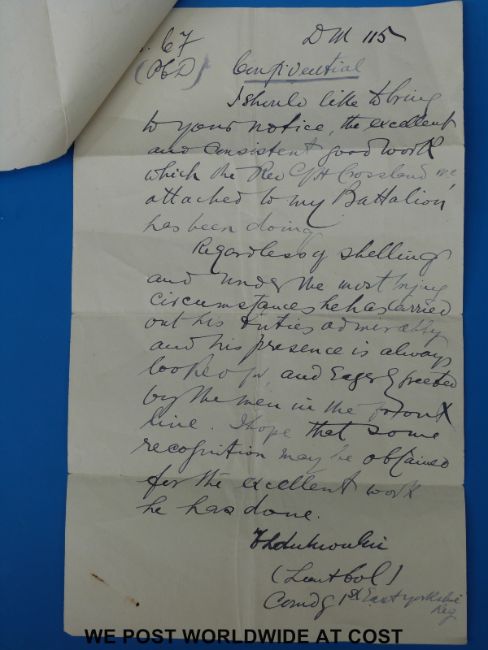 67
DM 115
(PCD)
Confidential
I should like to bring
to your notice, the excellent
and consistent good work
which the Rev C/H Crossland
attached to my Battalion
has been doing
Regardless of shelling
and under the most trying
circumstances he has carried
out his duties admirably
and his presence is always
looked for and Eagerly greeted
by the men in the front
line. I hope that some
recognition may be obtained
for the excellent work
he has done.
(Lieut Col)
Comdg 1st East Yorkshire
Reg
WE POST WORLDWIDE AT COST